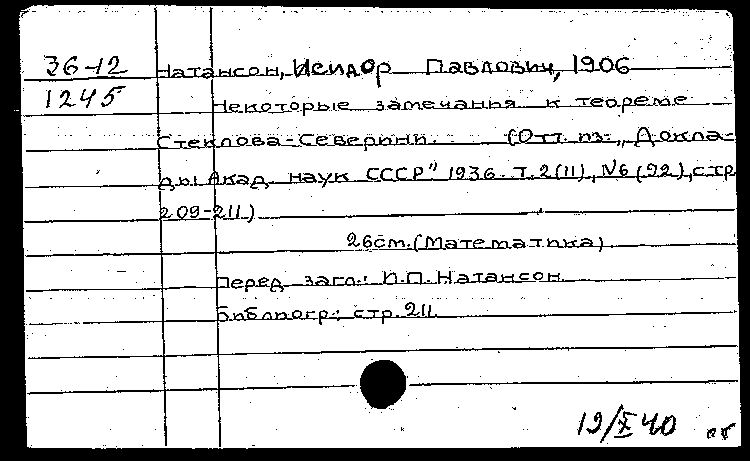 36-12 Натансон, Исидор Павлович, 1906
1245 Некоторые замечания к теореме
Стеклова-Северини. (Отт. из: „Докла-
ды Акад. наук СССР" 1936. Т. 2(11), №6 (92), стр.
209-211)
26см. (Математика)
Перед загл.: И.П. Натансон
Библиогр.: стр. 211.
19/X 40